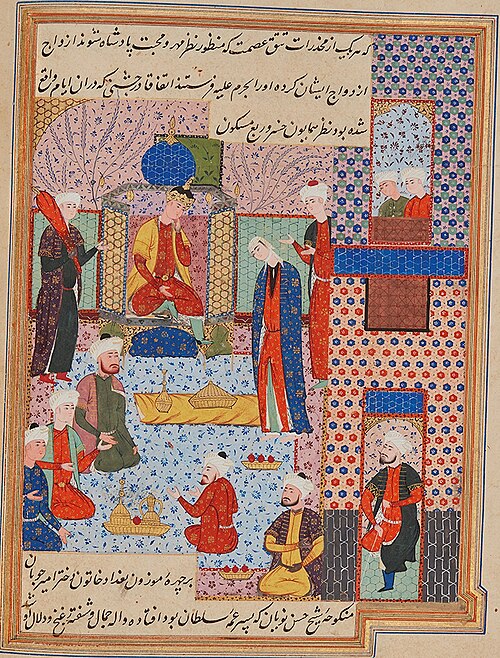 که هر یک از مخدرات تتق عصمت که منظور نظر مهر و محبت پادشاه شوند ازواج
از دواج ایشان کرده او را بحرم علیه فرستند اتفاقا در جشنی که در ان ایام واقع
شده بود نظر همایون خسرو ربع مسکون
بر چهره موزون بغداد خاتون دختر امیر چوبان
منکوحه شیخ حسن نویان که پسر عمه سلطان بود افتاده واله جمال و شیفته غنج و دلال او شد